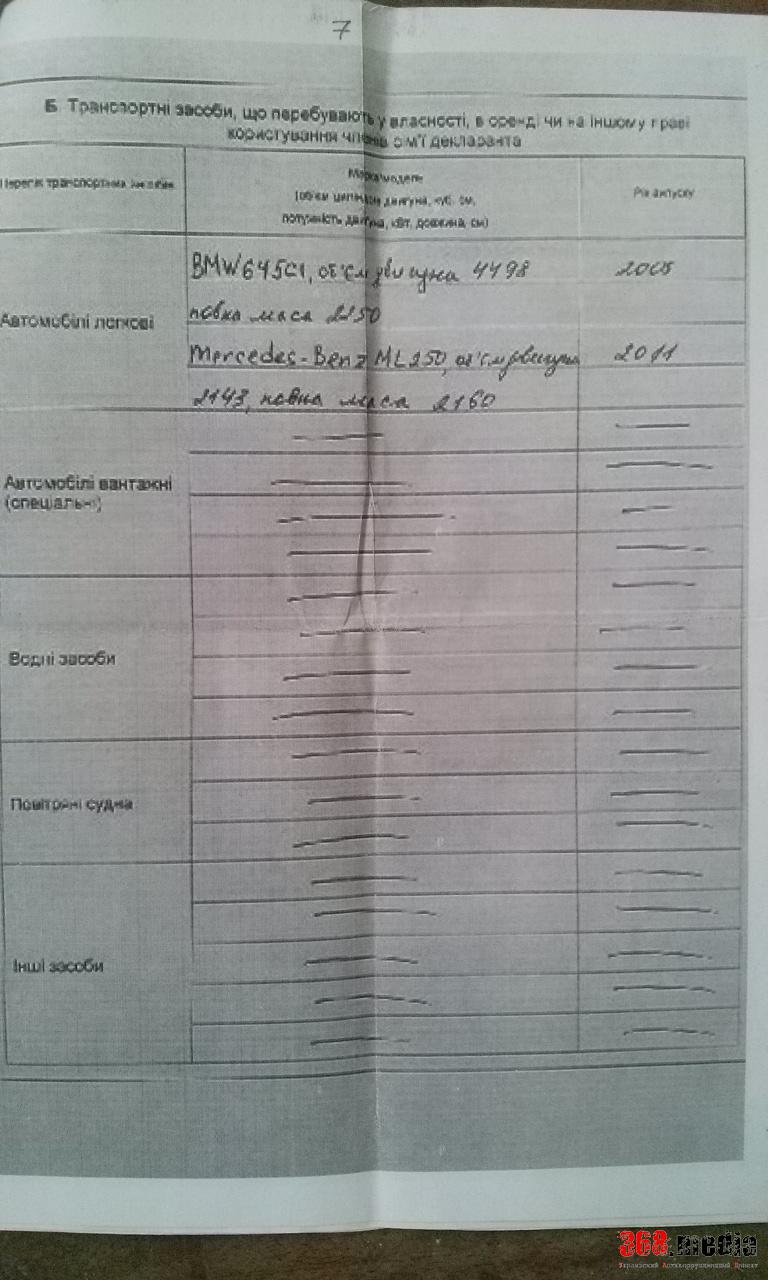 7
Б Транспортні засоби, що перебувають у власності, в оренді чи на іншому праві
користування членів сім'ї декларанта
Перелік транспортних засобів
Марка/модель
(об'єм циліндрів двигуна, куб. см,
потужність двигуна, кВт, довжина, см)
Рік випуску
Автомобілі легкові
BMW 645CI, об'єм двигуна 4498
2005
повна маса 2150
Mercedes-Benz ML250, об'єм двигуна
2011
2143, повна маса 2160
Автомобілі вантажні
(спеціальні)
Водні засоби
Повітряні судна
Інші засоби
368.media
Украинский Антикоррупционный Проект